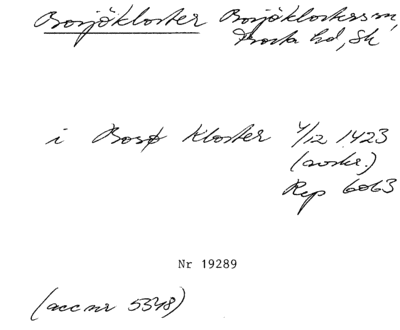 Bosjökloster Bosjöklosters sn,
Frosta hd, Sk
i Bosø Kloster 4/12 1423
(avskr.)
Rep 6063
Nr 19289
(acc nr 5348)